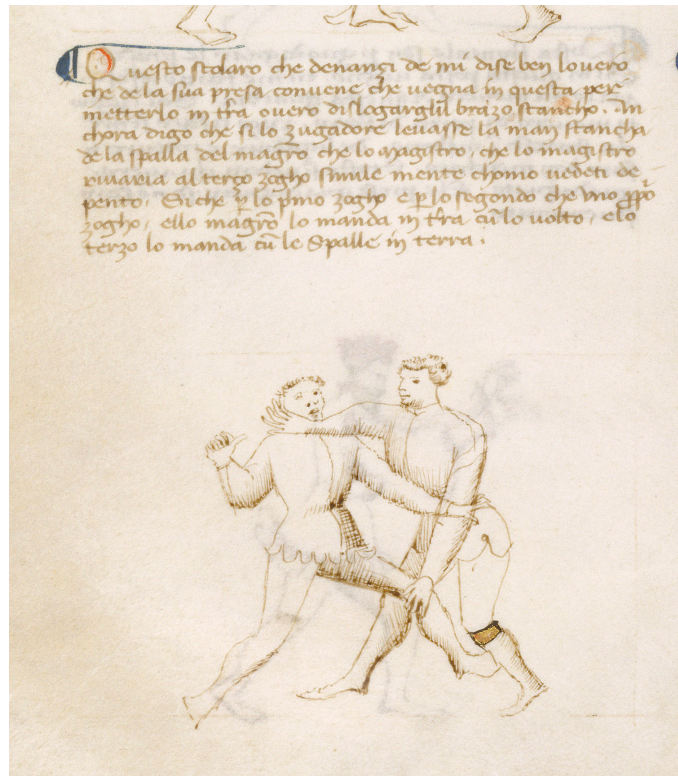 Questo scolaro che denançi de mi dise ben lo uero
che de la sua presa conuene che uegna in questa per
metterlo in t'ra ouero dislogargl'il brazo stancho. An
chora digo che si lo zugadore leuasse la man stancha
de la spalla del magro che lo magistro, che lo magistro
riuaria al terço zogho simile mente chomo uedeti de
pento. Siche p lo pmo zogho e p lo segondo che uno
zogho, ello magro lo manda in t'ra cu lo uolto, e lo
terzo lo manda cu le Spalle in terra.